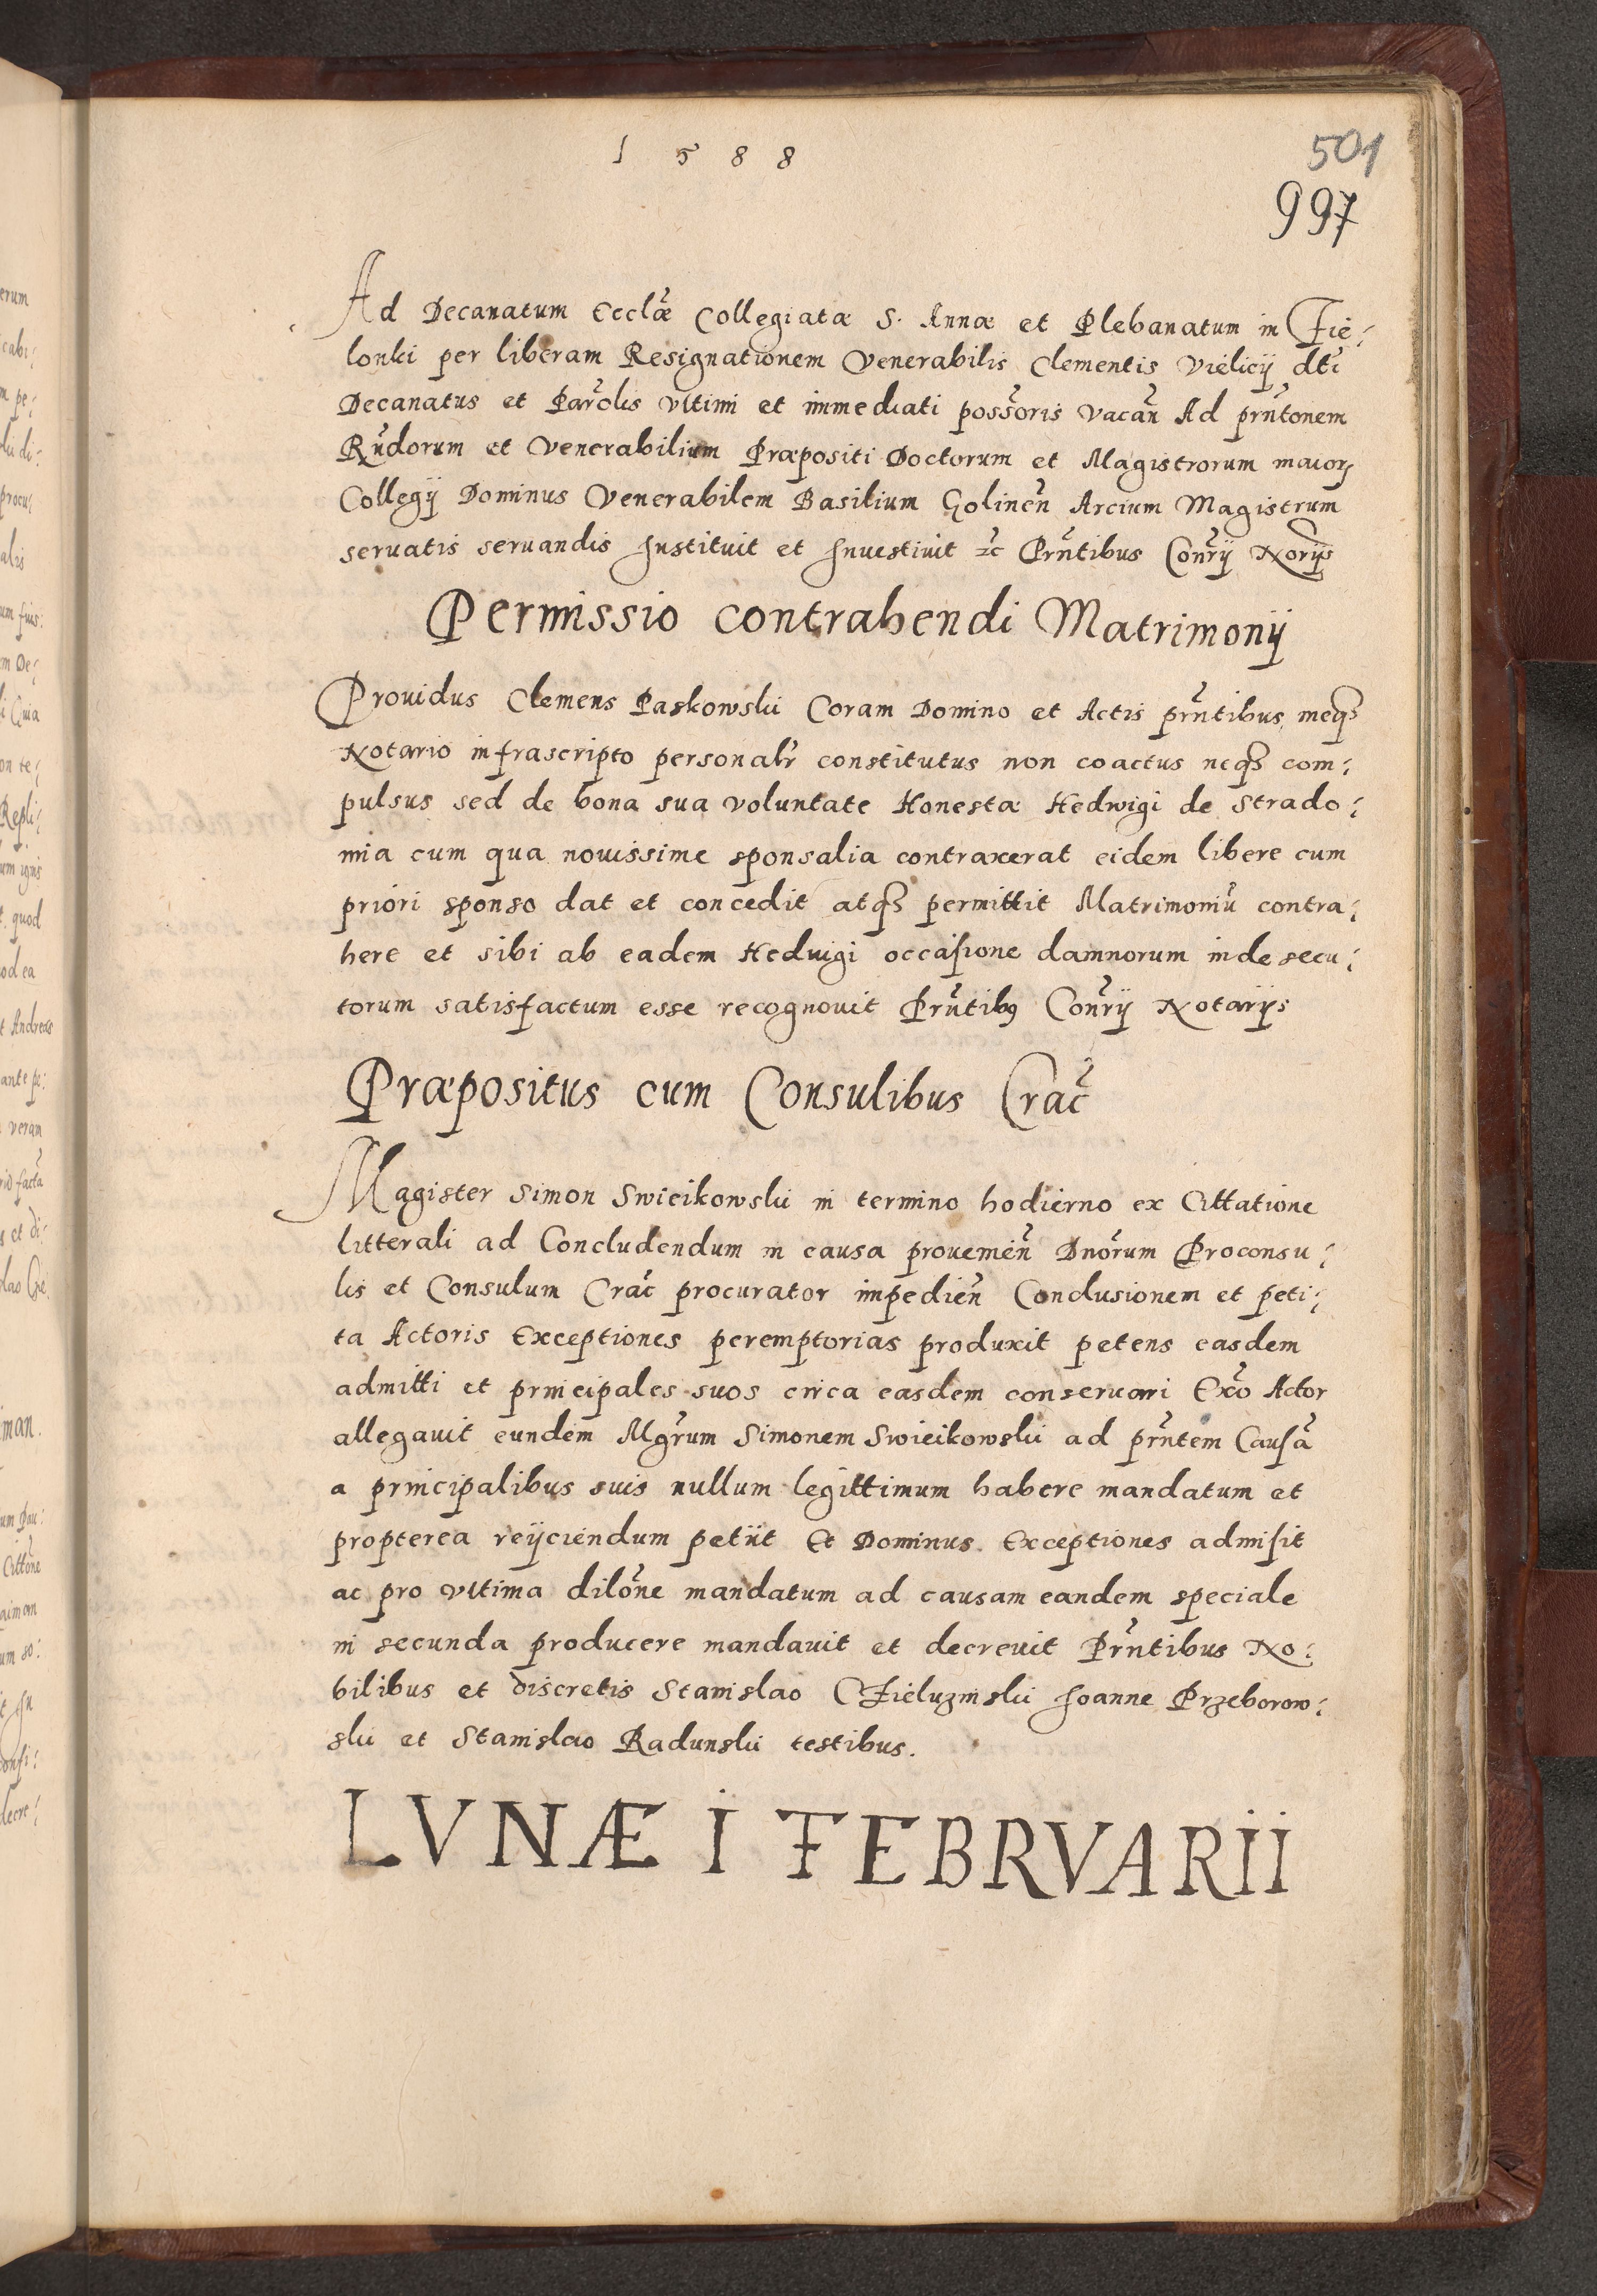 1 5 8 8
501
997
Ad Decanatum Ecclæ Collegiatæ S. Annæ et Plebanatum in Zie:
lonki per liberam Resignationem Venerabilis Clementis Vielicij dti
Decanatus et Parolis vltimi et immediati possoris vacan Ad prntonem
Rndorum et Venerabilium Præpositi Doctorum et Magistrorum maior
Collegij Dominus Venerabilem Basilium Golinen Arcium Magistrum
seruatis seruandis Instituit et Inuestiuit zc Prntibus Conrij Norijs
Permissio contrahendi Matrimonij
Prouidus Clemens Paskowski Coram Domino et Actis prntibus meqȝ
Notario infrascripto personalr constitutus non coactus neqȝ com:
pulsus sed de bona sua voluntate Honestæ Hedwigi de Strado:
mia cum qua nouissime sponsalia contraxerat eidem libere cum
priori sponso dat et concedit atqȝ permittit Matrimoniu contra:
here et sibi ab eadem Heduigi occasione damnorum inde secu:
torum satisfactum esse recognouit Prntibꝫ Conrij Notarijs
Præpositus cum Consulibus Crac
Magister Simon Swieikowski in termino hodierno ex Cittatione
litterali ad Concludendum in causa prouemen Dnorum Proconsu:
lis et Consulum Crac procurator impedien Conclusionem et peti:
ta Actoris Exceptiones peremptorias produxit petens easdem
admitti et principales suos circa easdem conseruari Exo Actor
allegauit eundem Mgrum Simonem Swieikowski ad prntem Causa
a principalibus suis nullum legittimum habere mandatum et
propterea reijciendum petiit Et Dominus Exceptiones admisit
ac pro vltima dilone mandatum ad causam eandem speciale
in secunda producere mandauit et decreuit Prntibus No:
bilibus et discretis Stanislao Zieluzinski Joanne Przeborow:
ski et Stanislao Radunski testibus.
LVNÆ I FEBRVARII